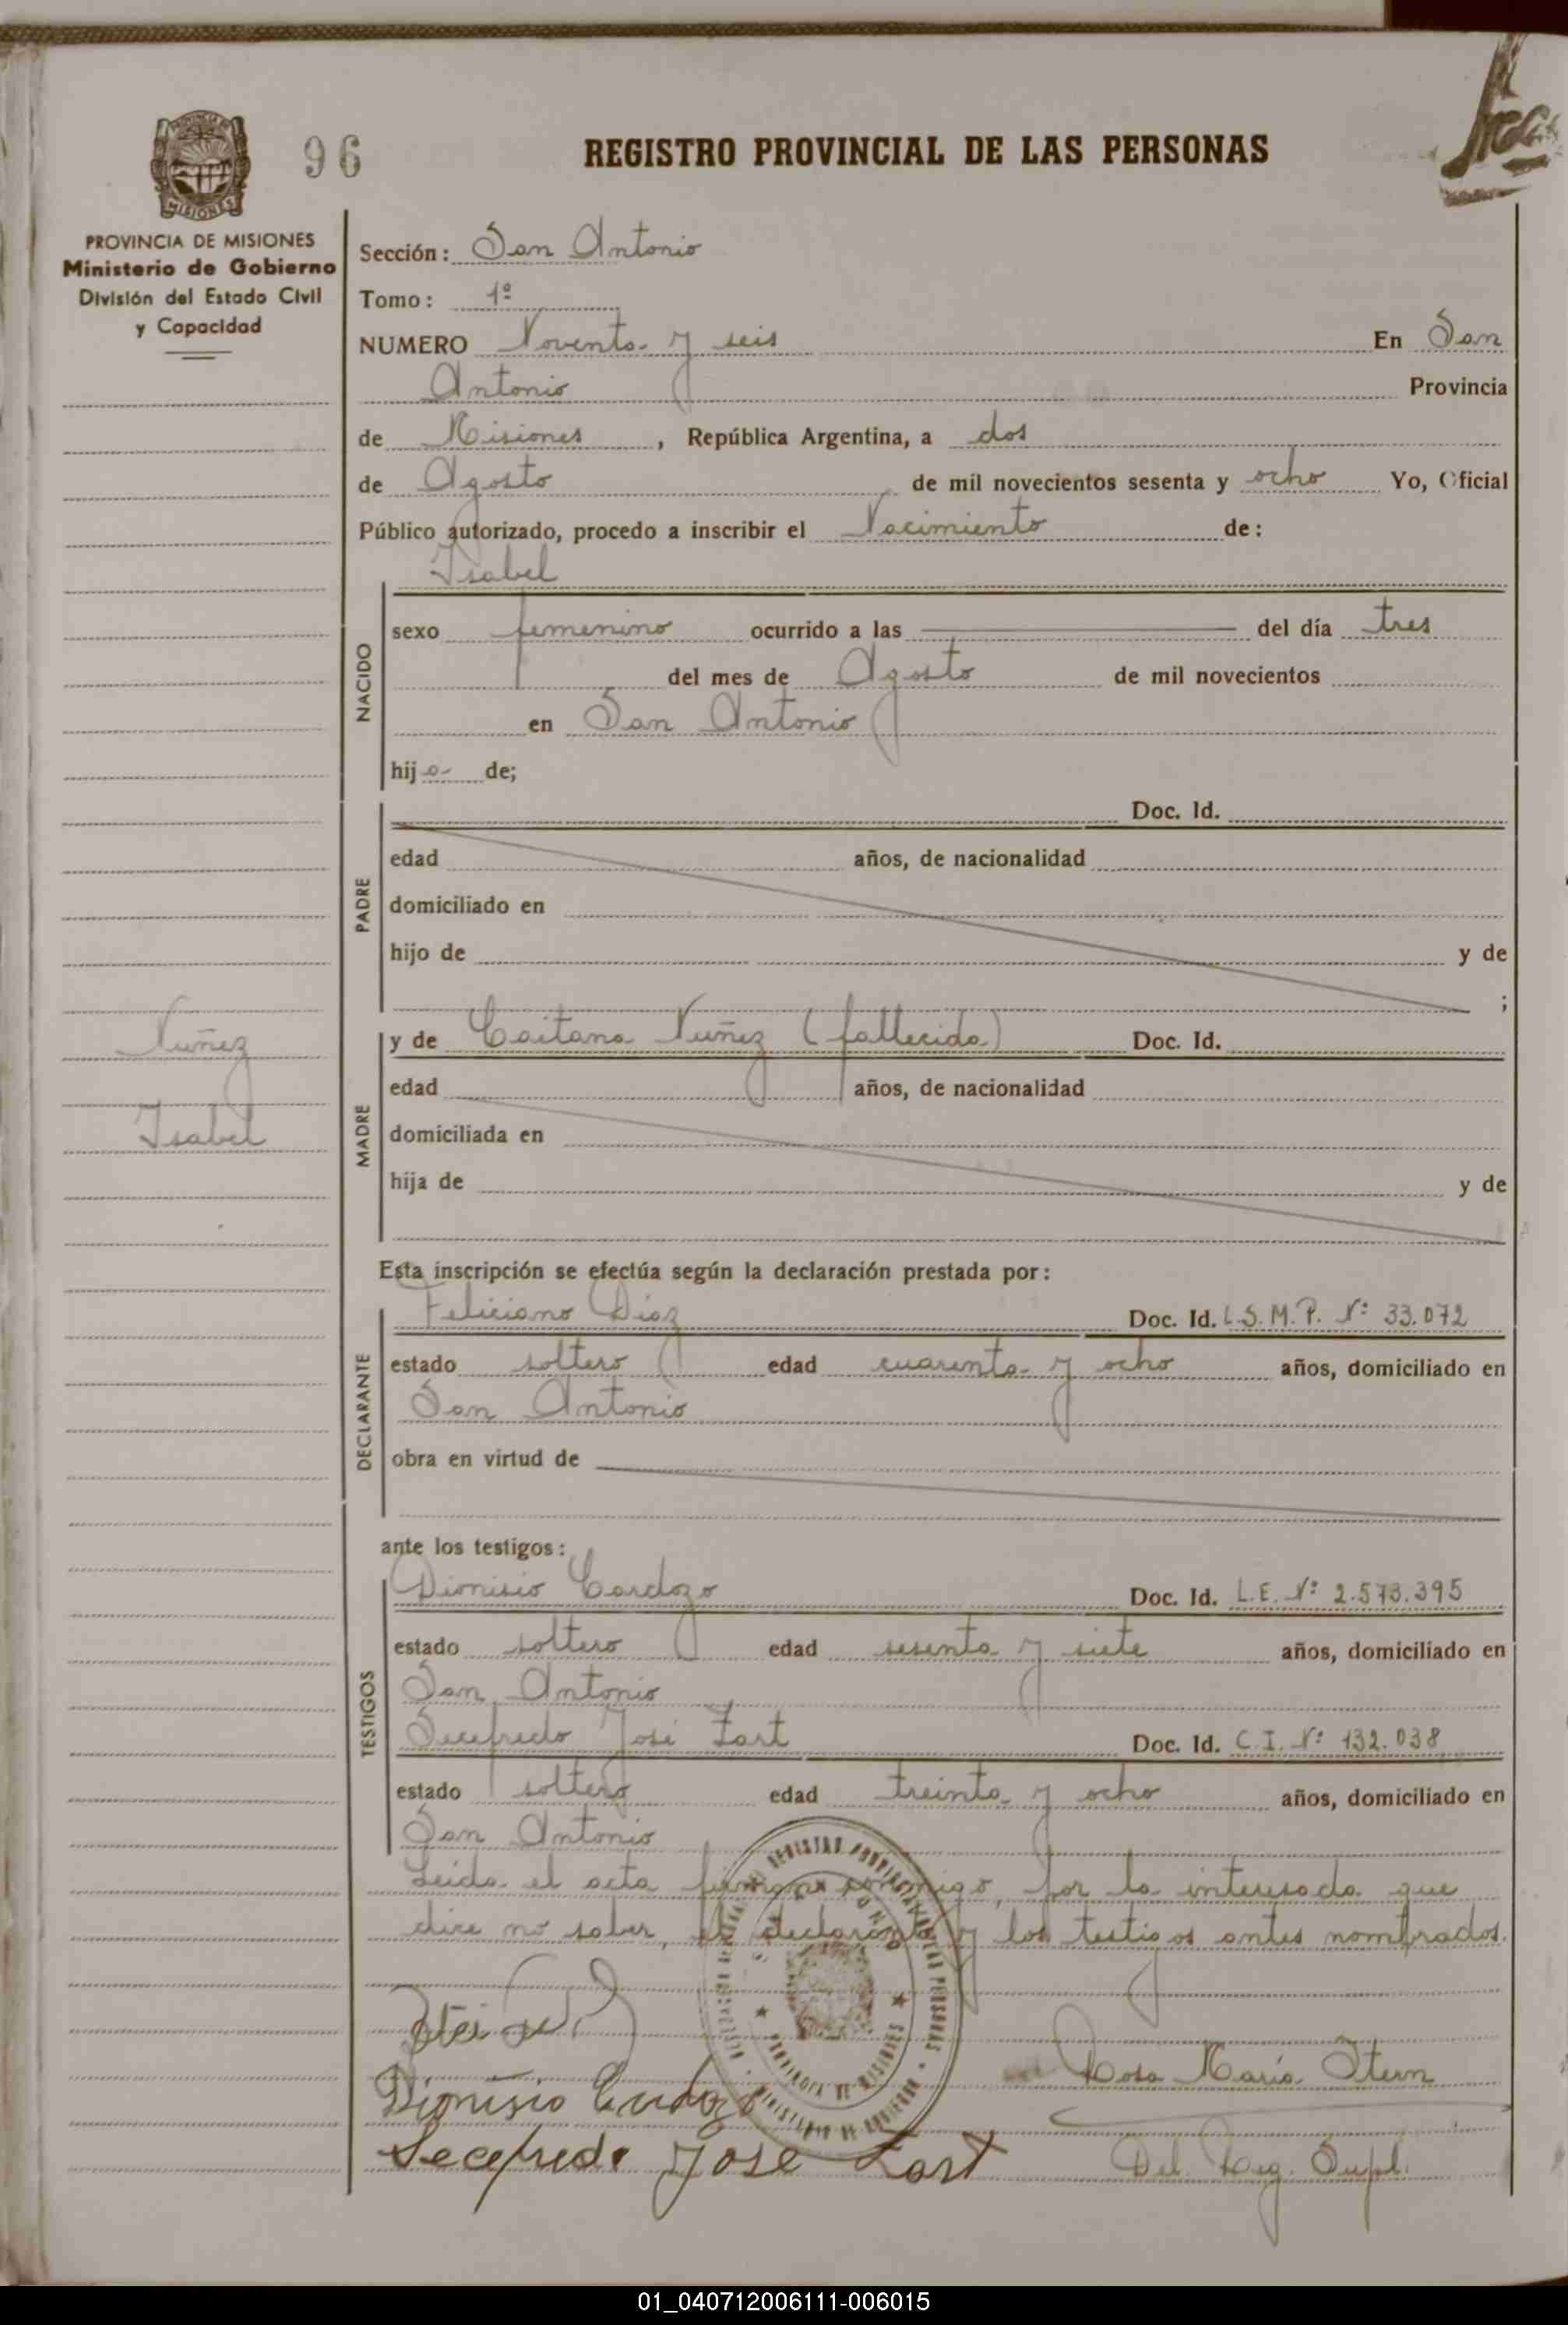 96
REGISTRO PROVINCIAL DE LAS PERSONAS
PROVINCIA DE MISIONES
Ministerio de Gobierno
División del Estado Civil
y Capacidad
Sección: San Antonio
Tomo: 1º
NUMERO Noventa y seis En San
Antonio Provincia
de Misiones, República Argentina, a dos
de Agosto de mil novecientos sesenta y ocho Yo, Oficial
Público autorizado, procedo a inscribir el Nacimiento de:
Isabel
NACIDO
sexo femenino ocurrido a las del día tres
del mes de Agosto de mil novecientos
en San Antonio
hija de;
PADRE
Doc. Id.
edad años, de nacionalidad
domiciliado en
hijo de y de
;
Nuñez
Isabel
MADRE
y de Caitana Nuñez (fallecida) Doc. Id.
edad años, de nacionalidad
domiciliada en
hija de y de
Esta inscripción se efectúa según la declaración prestada por:
DECLARANTE
Feliciano Díaz Doc. Id. L.S.M.P. Nº 33.072
estado soltero edad cuarenta y ocho años, domiciliado en
San Antonio
obra en virtud de
ante los testigos:
TESTIGOS
Dionisio Cardozo Doc. Id. L.E. Nº 2.573.395
estado soltero edad sesenta y siete años, domiciliado en
San Antonio
Secefredo José Zart Doc. Id. C.I. Nº 132.038
estado soltero edad treinta y ocho años, domiciliado en
San Antonio
Leida el acta firman conmigo, por la interesada que
dice no saber, el declarante y los testigos antes nombrados.
Rosa María Stern
Dionisio Cardozo
Secefredo José Zart
Del. Reg. Supl.
01_040712006111-006015